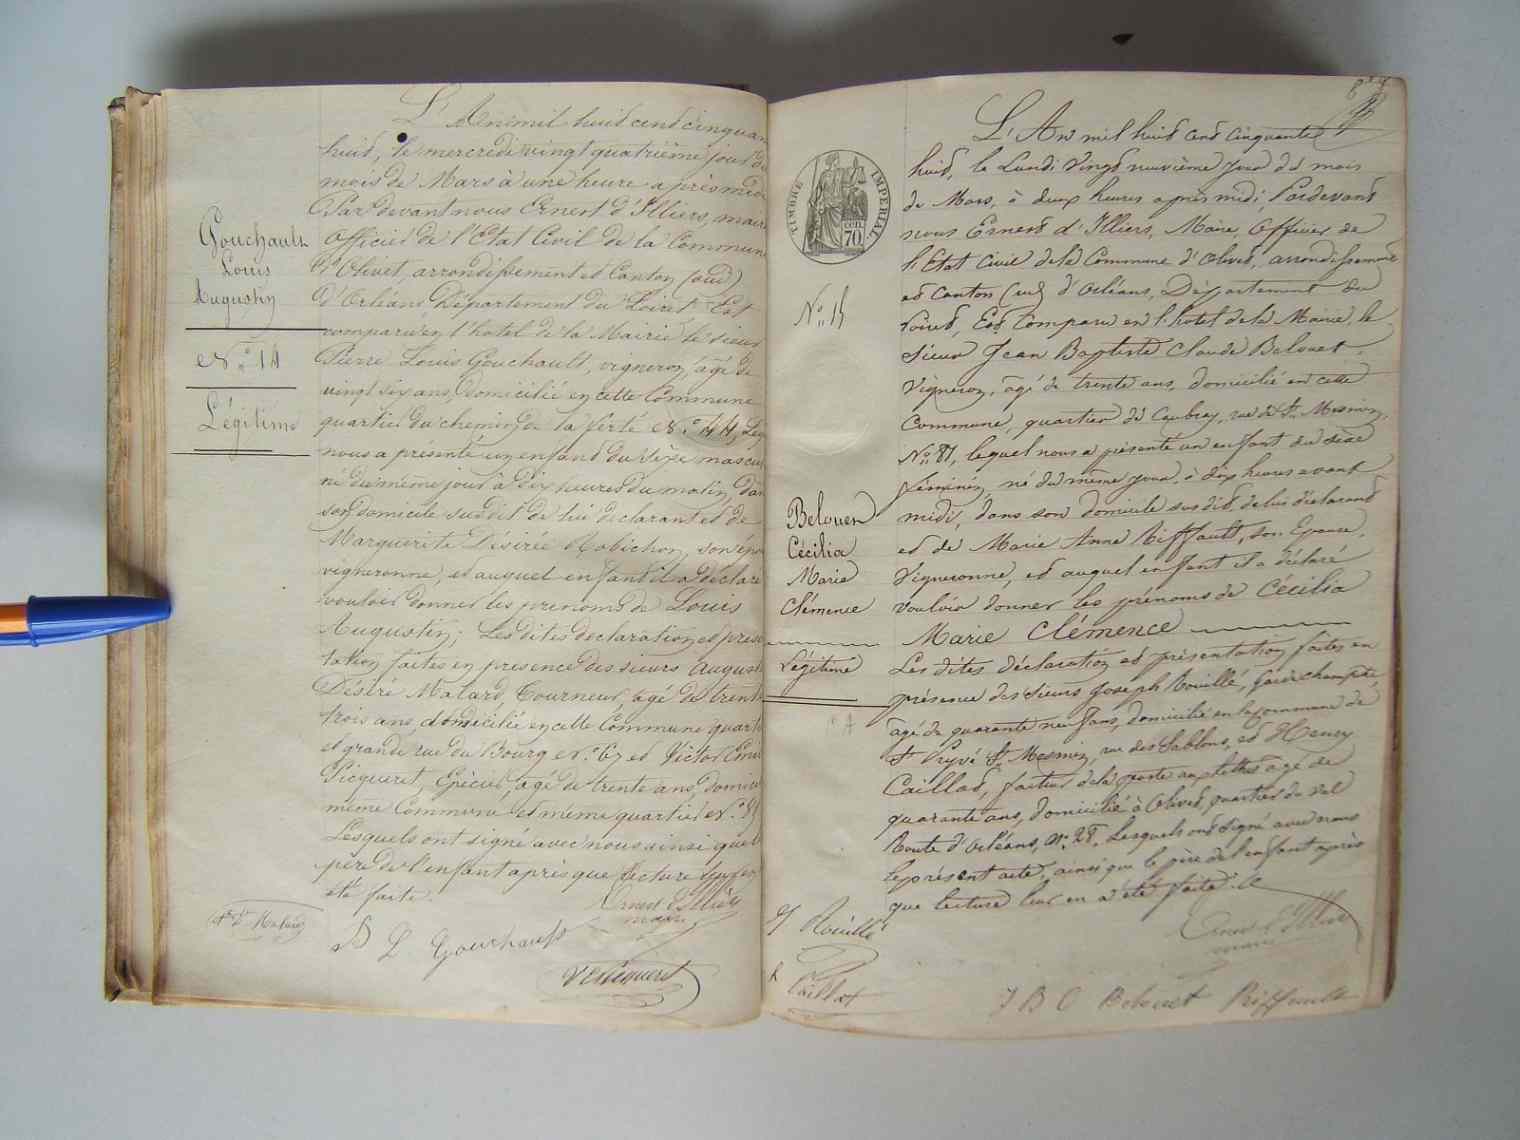 Gouchault
Louis
Augustin
N.o 14
Légitime
L'An mil huit cent cinquan
huit, le mercredi vingt quatrième jour du
mois de Mars à une heure après midi
Par devant nous Ernest d'Illiers, maire
officier de l'Etat Civil de la Commune
d'Olivet, arrondissement et Canton (sud)
d'Orléans Département du Loiret Est
comparu en l'hotel de la Mairie le sieur
Pierre Louis Gouchault, vigneron, agé de
vingt six ans, domicilié en cette Commune
quartier du chemin de la ferté N.o 44, Leq
nous a présenté un enfant du sexe mascu
né du même jour à dix heures du matin, dan
son domicile susdit de lui declarant et de
Marguerite Désirée Robichon, son épo
vigneronne, et auquel enfant il a déclaré
vouloir donner les prenoms de Louis
Augustin; Les dites declaration et prese
tation faites en presence des sieurs August
Désiré Malard Tourneur, agé de trente
trois ans, domicilié en cette Commune quarti
et grande rue du Bourg N.o 67 et Victor Emi
Picqueret, Epicier, agé de trente ans, domici
même Commune et meme quartier N.o 85
Lesquels ont signé avec nous ainsi que l
père de l'enfant après que lecture leur en
été faite.
Ernest d'Illiers
maire
At Dé Malard
P L Gouchault
VEPicqueret
TIMBRE IMPERIAL
70
N.o 15
Belouet
Cécilia
Marie
Clémence
Légitime
L'An mil huit cent cinquante
huit, le Lundi Vingt neuvième jour du mois
de Mars, à deux heures après midi; Pardevant
nous Ernest d'Illiers, Maire, Officier de
l'Etat Civil de la Commune d'Olivet, arrondissement
et Canton (sud) d'Orléans, Département du
Loiret, Est Comparu en l'hotel de la Mairie, le
Sieur Jean Baptiste Claude Belouet,
Vigneron, agé de trente ans, domicilié en cette
Commune, quartier de Caubray, rue de St Mesmin,
N.o 81, lequel nous a présenté un enfant du sexe
féminin, né du même jour, à dix heures avant
midi, dans son domicile susdit, de lui déclarant
et de Marie Anne Riffault, son Epouse,
Vigneronne, et auquel enfant il a déclaré
vouloir donner les prénoms de Cécilia
Marie Clémence
Les dites déclaration et présentation faites en
présence des sieurs Joseph Rouillé, garde champêtre,
agé de quarante neuf ans, domicilié en la commune de
St Pryvé St Mesmin, rue des Sablons, et Henry
Caillat, facteur de la poste aux lettres agé de
quarante ans, domicilié à Olivet, quartier du Val
Route d'Orléans, N.o 28, Lesquels ont signé avec nous
le présent acte, ainsi que le père de l'enfant après
que lecture leur en a été faite.
Ernest d'Illiers
maire
J Rouillé
h Caillat
J B C Belouet Riffault